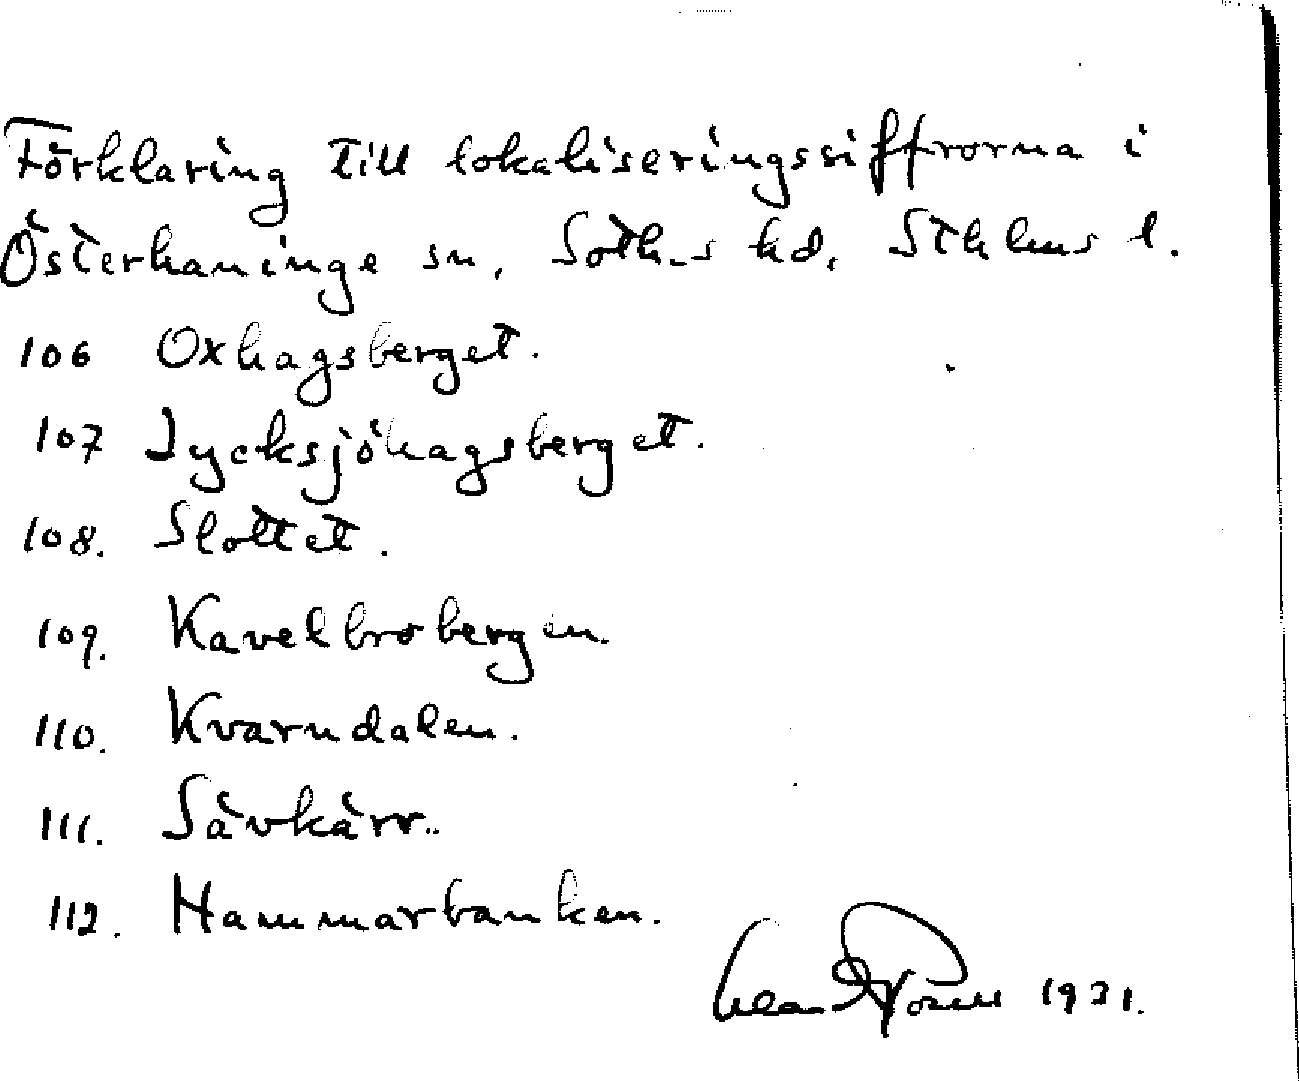 Förklaring till lokaliseringssiffrorna i
Österhaninge sn, Soth-s hd, Sthlms l.
106 Oxhagsberget.
107 Lycksjöhagsberget.
108. Slottet.
109. Kavelbrobergen.
110. Kvarndalen.
111. Sävkärr.
112. Hammarbanken.
1931.